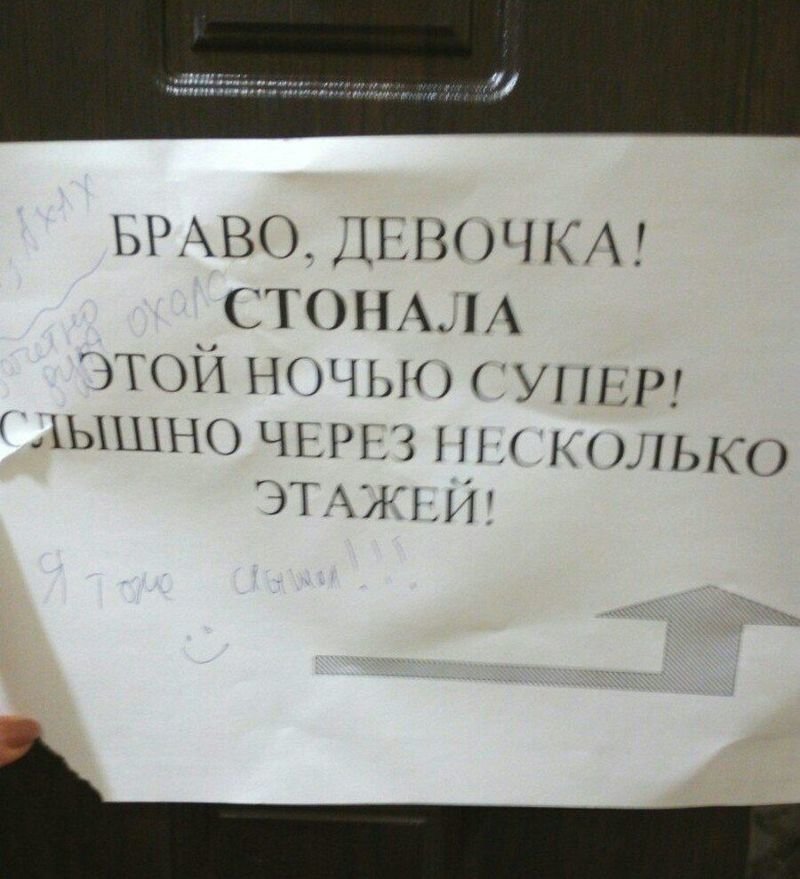 БРАВО, ДЕВОЧКА!
СТОНАЛА
ЭТОЙ НОЧЬЮ СУПЕР!
СЛЫШНО ЧЕРЕЗ НЕСКОЛЬКО
ЭТАЖЕЙ!
охала
Я тоже слышал!!!